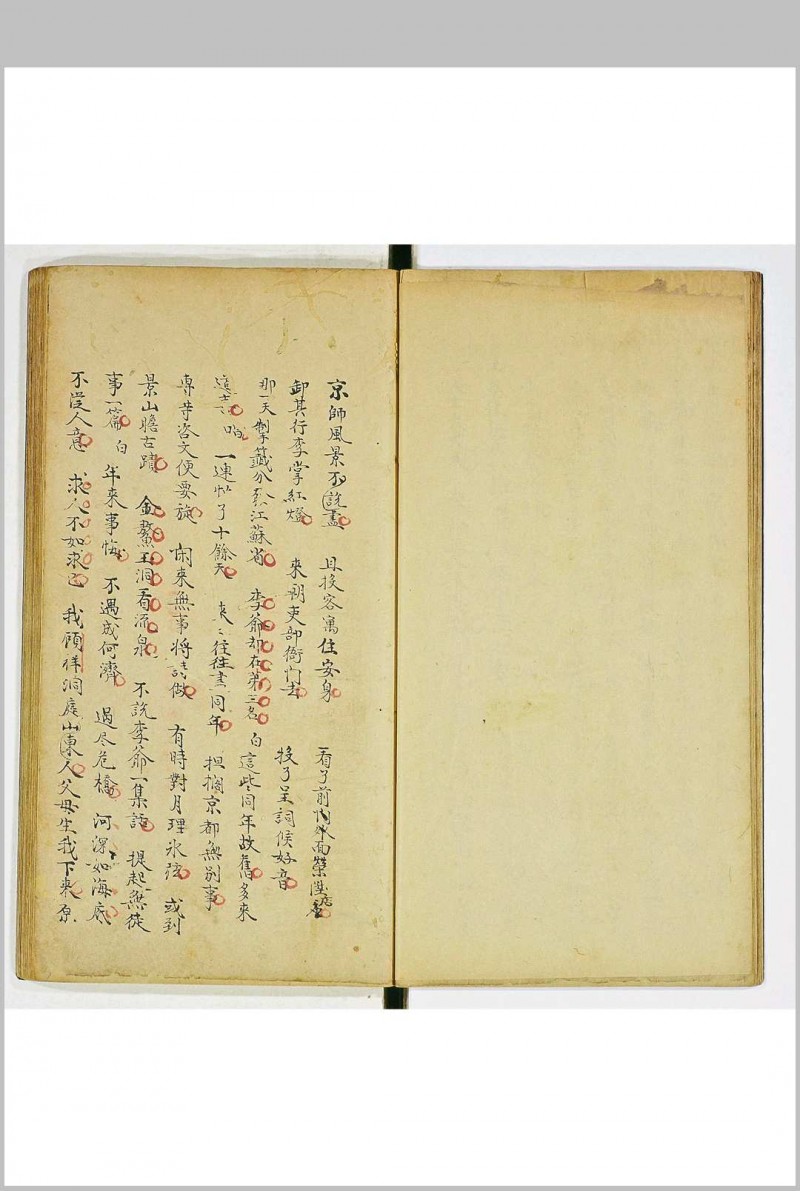 京師風景不說盡 且投客寓住安身 看了前門面榮陞店
卸其行李掌紅燈 來朝吏部衙門去 投了呈詞候好音
那一天掣籤分到江蘇省 李爺却在第三名 白 這些同年故舊多來
這 一連忙了十餘天 來々往往盡同年 担擱京都無別事
專等咨文便要旋 闲來無事將詩做 有時對月理氷弦 或到
景山瞻古蹟 金鰲玉洞看流泉 不說李爺一集詩 提起無徒
事一篇 白 年來事悔 不遇成何濟 過尽危橋 河深如海底
不從人意 求人不如求己 我顧祥洞庭山東人父母生我下來原